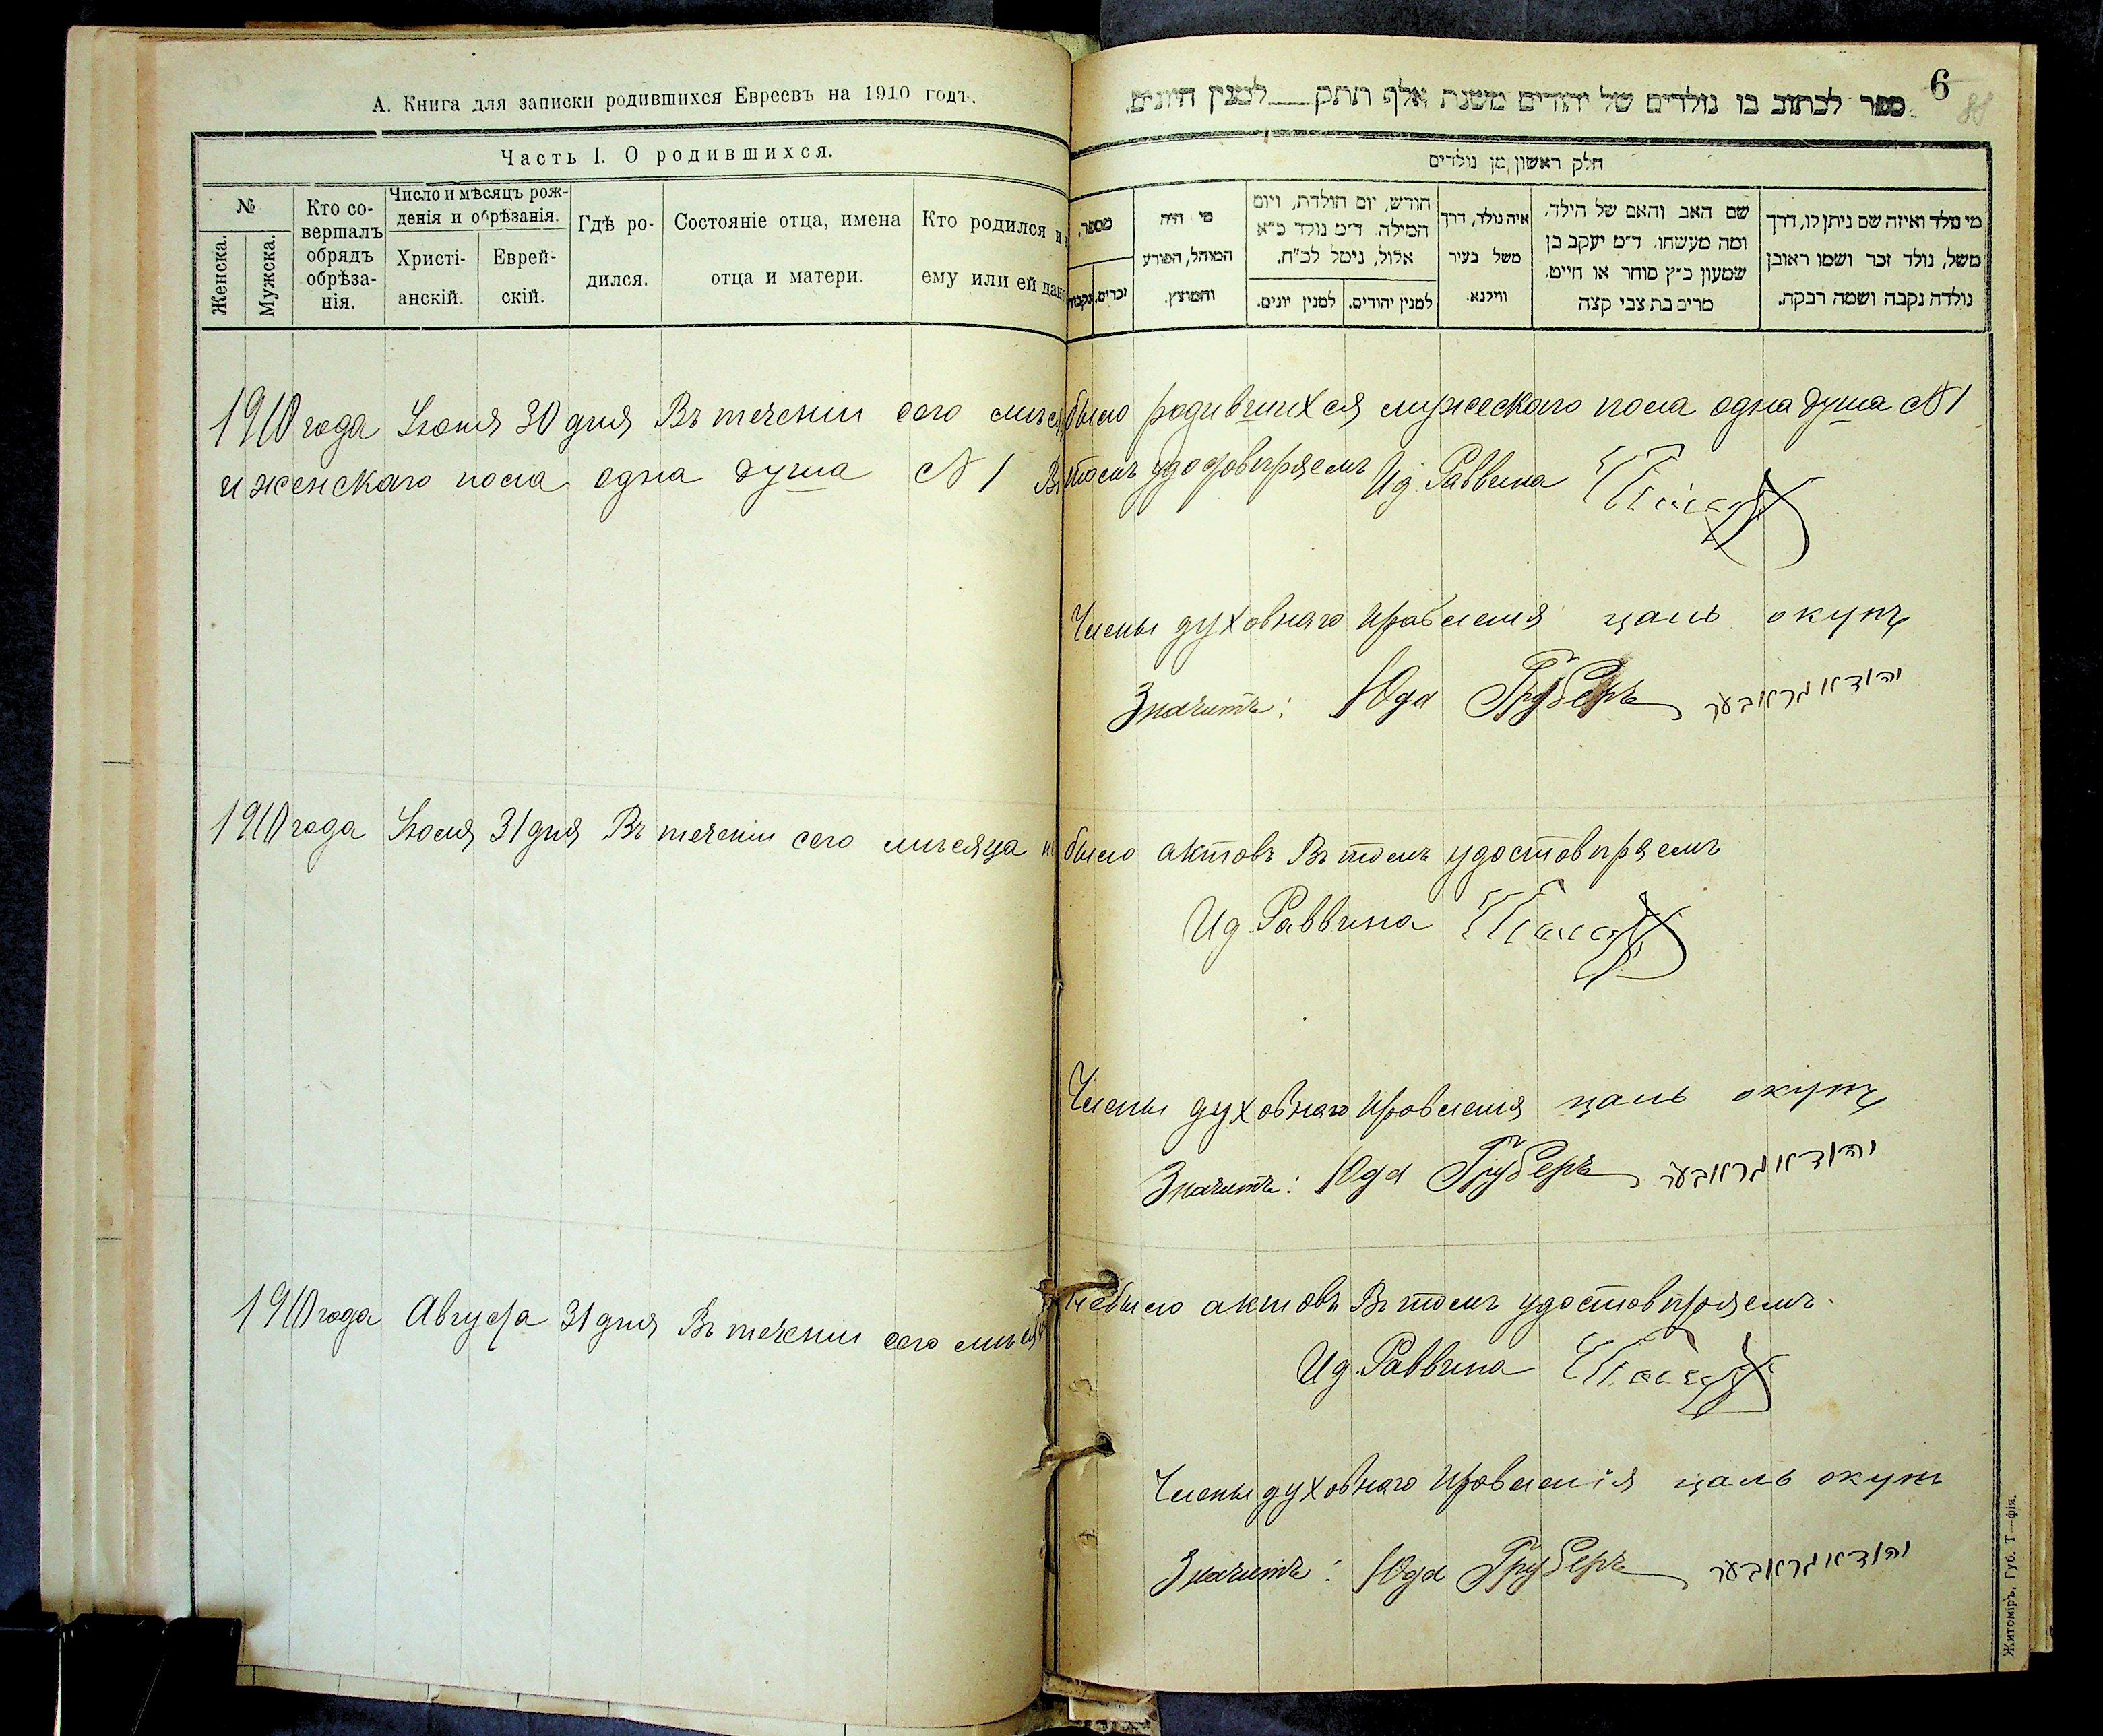 А. Книга для записки родившихся Евреевъ на 1910 годъ.
Часть I. О родившихся.
№
Женска.
Мужска.
Кто со-
вершалъ
обрядъ
обрѣза-
нія.
Число и мѣсяцъ рож-
денія и обрѣзанія.
Христі-
анскій.
Еврей-
скій.
Гдѣ ро-
дился.
Состояніе отца, имена
отца и матери.
Кто родился и
ему или ей дано
6
88
ספר לכתוב בו נולדים של יהודים משנת אלף תתק למנין היונים.
חלק ראשון מן נולדים
מספר.
זכרים.
נקבות
מי היה
המוהל, הפורע
והמוצץ.
חודש, יום הולדת, ויום
המילה. ד״מ נולד כ״א
אלול, נימל לכ״ח.
למנין יונים.
למנין יהודים.
איה נולד, דרך
משל בעיר
ווילנא.
שם האב והאם של הילד,
ומה מעשהו. ד״מ יעקב בן
שמעון כ״ץ סוחר או חייט.
מרים בת צבי קצה
מי נולד ואיזה שם ניתן לו, דרך
משל, נולד זכר ושמו ראובן
נולדה נקבה ושמה רבקה.
1910 года Іюня 30 дня Въ теченіи сего мѣсяца было родившихся мужескаго пола одна душа № 1
и женскаго пола одна душа № 1 Въ томъ удостовѣряемъ Ид. Раввина
Члены духовнаго правленія
Значитъ: Юда Груберъ יהודא גראבער
1910 года Іюля 31 дня Въ теченіи сего мѣсяца не было актовъ Въ томъ удостовѣряемъ
Ид. Раввина
Члены духовнаго правленія
Значитъ: Юда Груберъ יהודא גראבער
1910 года Августа 31 дня Въ теченіи сего мѣсяца небыло актовъ Въ томъ удостовѣряемъ.
Ид. Раввина
Члены духовнаго правленія
Значитъ: Юда Груберъ יהודא גראבער
Житоміръ, Губ. Т—фія.